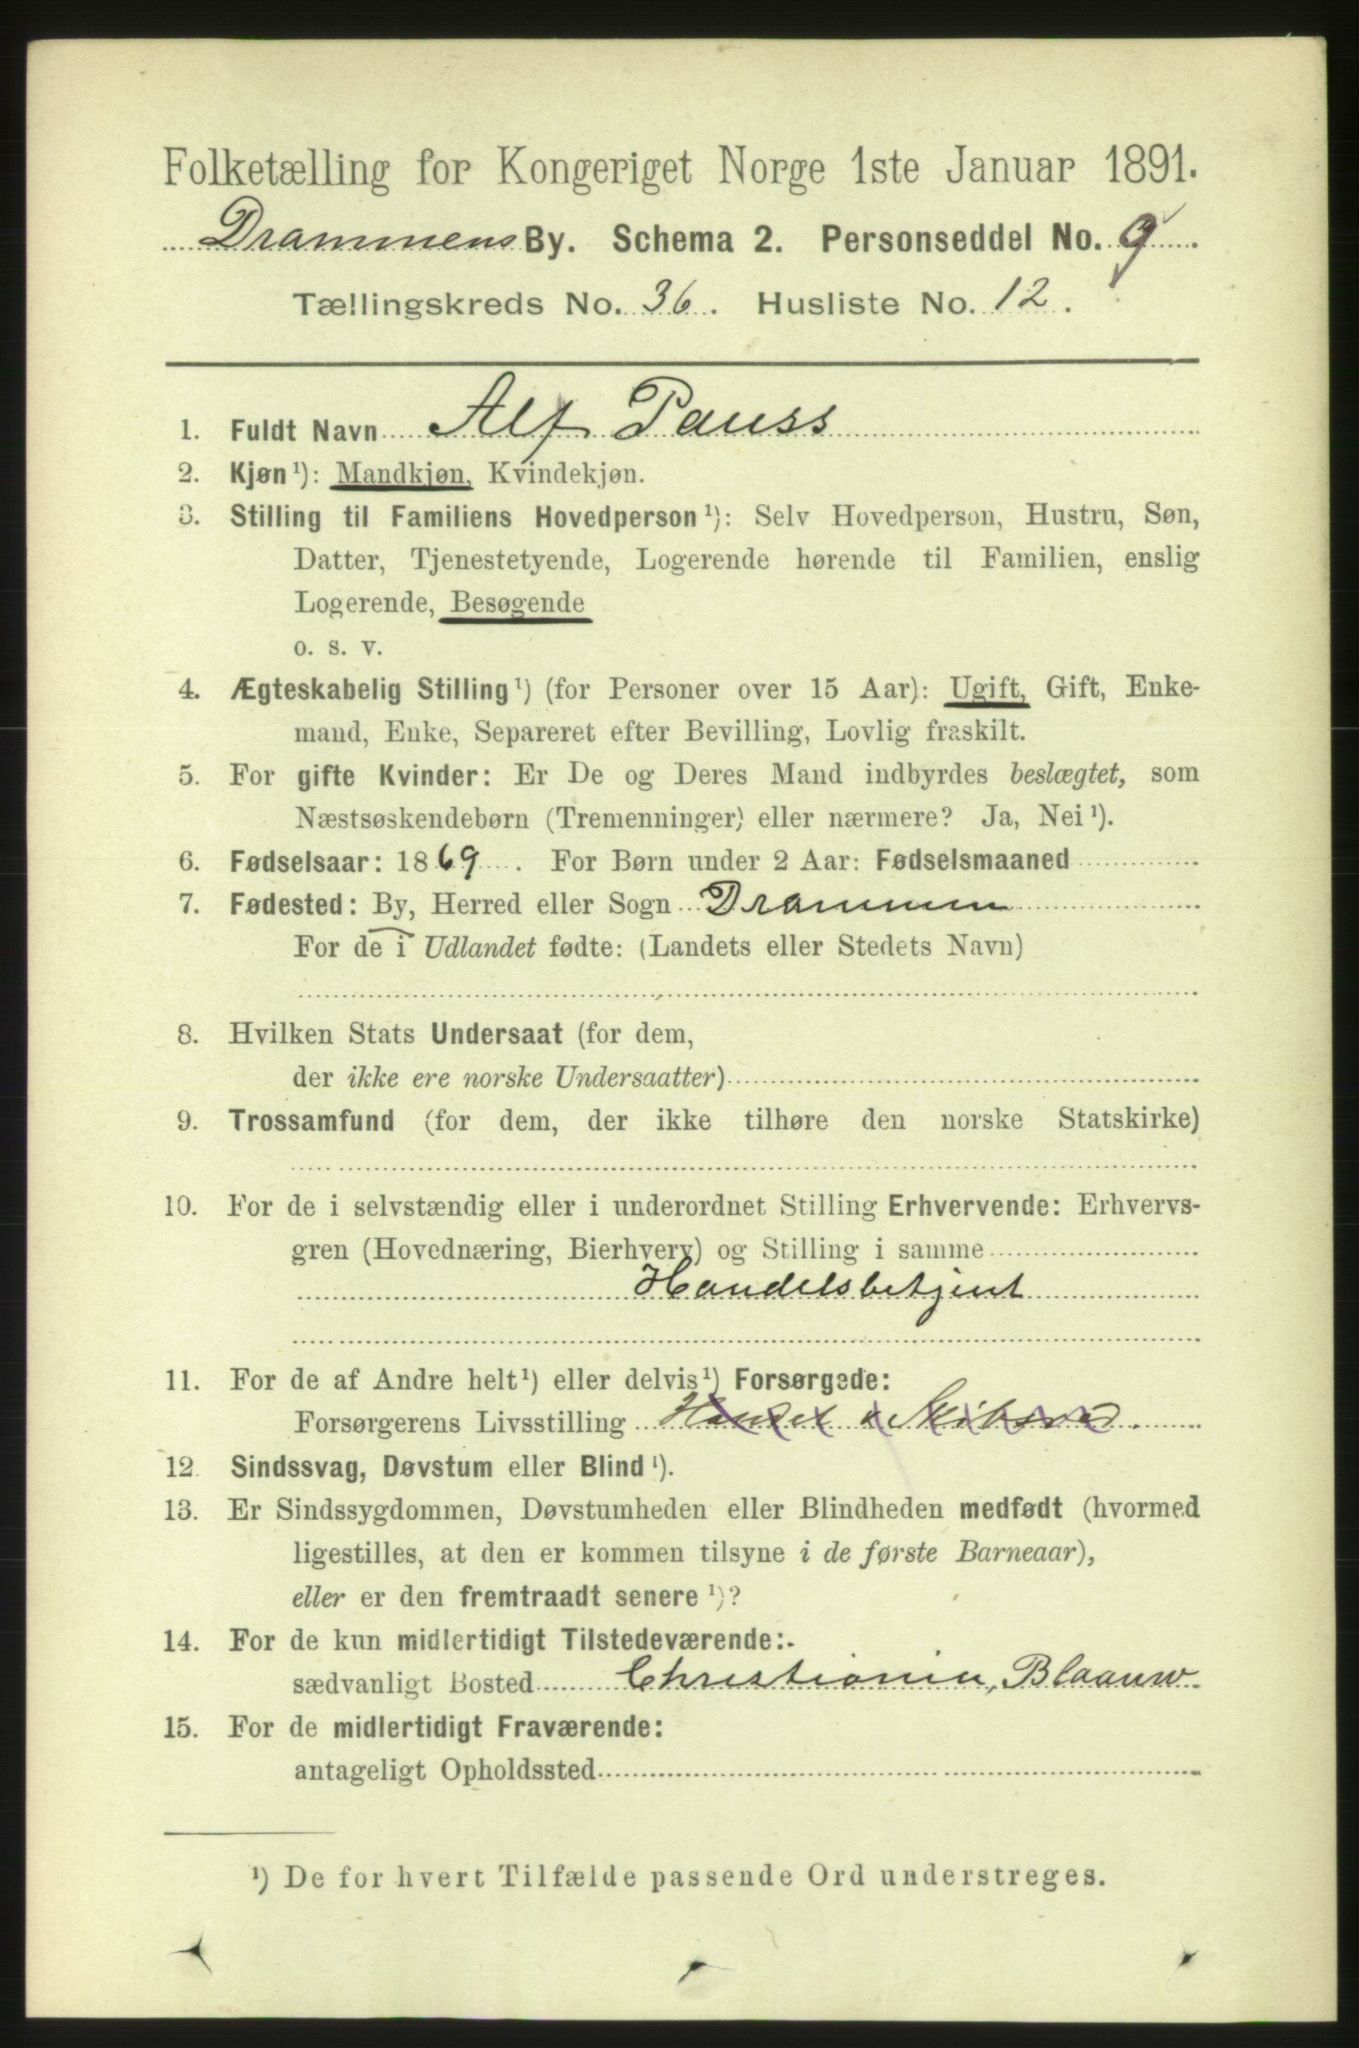 Folketælling for Kongeriget Norge 1ste Januar 1891.
Drammens By. Schema 2. Personseddel No. 9
Tællingskreds No. 36. Husliste No. 12.
1. Fuldt Navn Alf Pauss
2. Kjøn ¹): Mandkjøn, Kvindekjøn.
3. Stilling til Familiens Hovedperson ¹): Selv Hovedperson, Hustru, Søn,
Datter, Tjenestetyende, Logerende hørende til Familien, enslig
Logerende, Besøgende
o. s. v.
4. Ægteskabelig Stilling ¹) (for Personer over 15 Aar): Ugift, Gift, Enke-
mand, Enke, Separeret efter Bevilling, Lovlig fraskilt.
5. For gifte Kvinder: Er De og Deres Mand indbyrdes beslægtet, som
Næstsøskendebørn (Tremenninger) eller nærmere? Ja, Nei ¹).
6. Fødselsaar: 1869. For Børn under 2 Aar: Fødselsmaaned
7. Fødested: By, Herred eller Sogn Drammen
For de i Udlandet fødte: (Landets eller Stedets Navn)
8. Hvilken Stats Undersaat (for dem,
der ikke ere norske Undersaatter)
9. Trossamfund (for dem, der ikke tilhøre den norske Statskirke)
10. For de i selvstændig eller i underordnet Stilling Erhvervende: Erhvervs-
gren (Hovednæring, Bierhverv) og Stilling i samme
Handelsbetjent
11. For de af Andre helt ¹) eller delvis ¹) Forsørgede:
Forsørgerens Livsstilling
12. Sindssvag, Døvstum eller Blind ¹).
13. Er Sindssygdommen, Døvstumheden eller Blindheden medfødt (hvormed
ligestilles, at den er kommen tilsyne i de første Barneaar),
eller er den fremtraadt senere ¹)?
14. For de kun midlertidigt Tilstedeværende:
sædvanligt Bosted Christiania, Blaauw
15. For de midlertidigt Fraværende:
antageligt Opholdssted
¹) De for hvert Tilfælde passende Ord understreges.